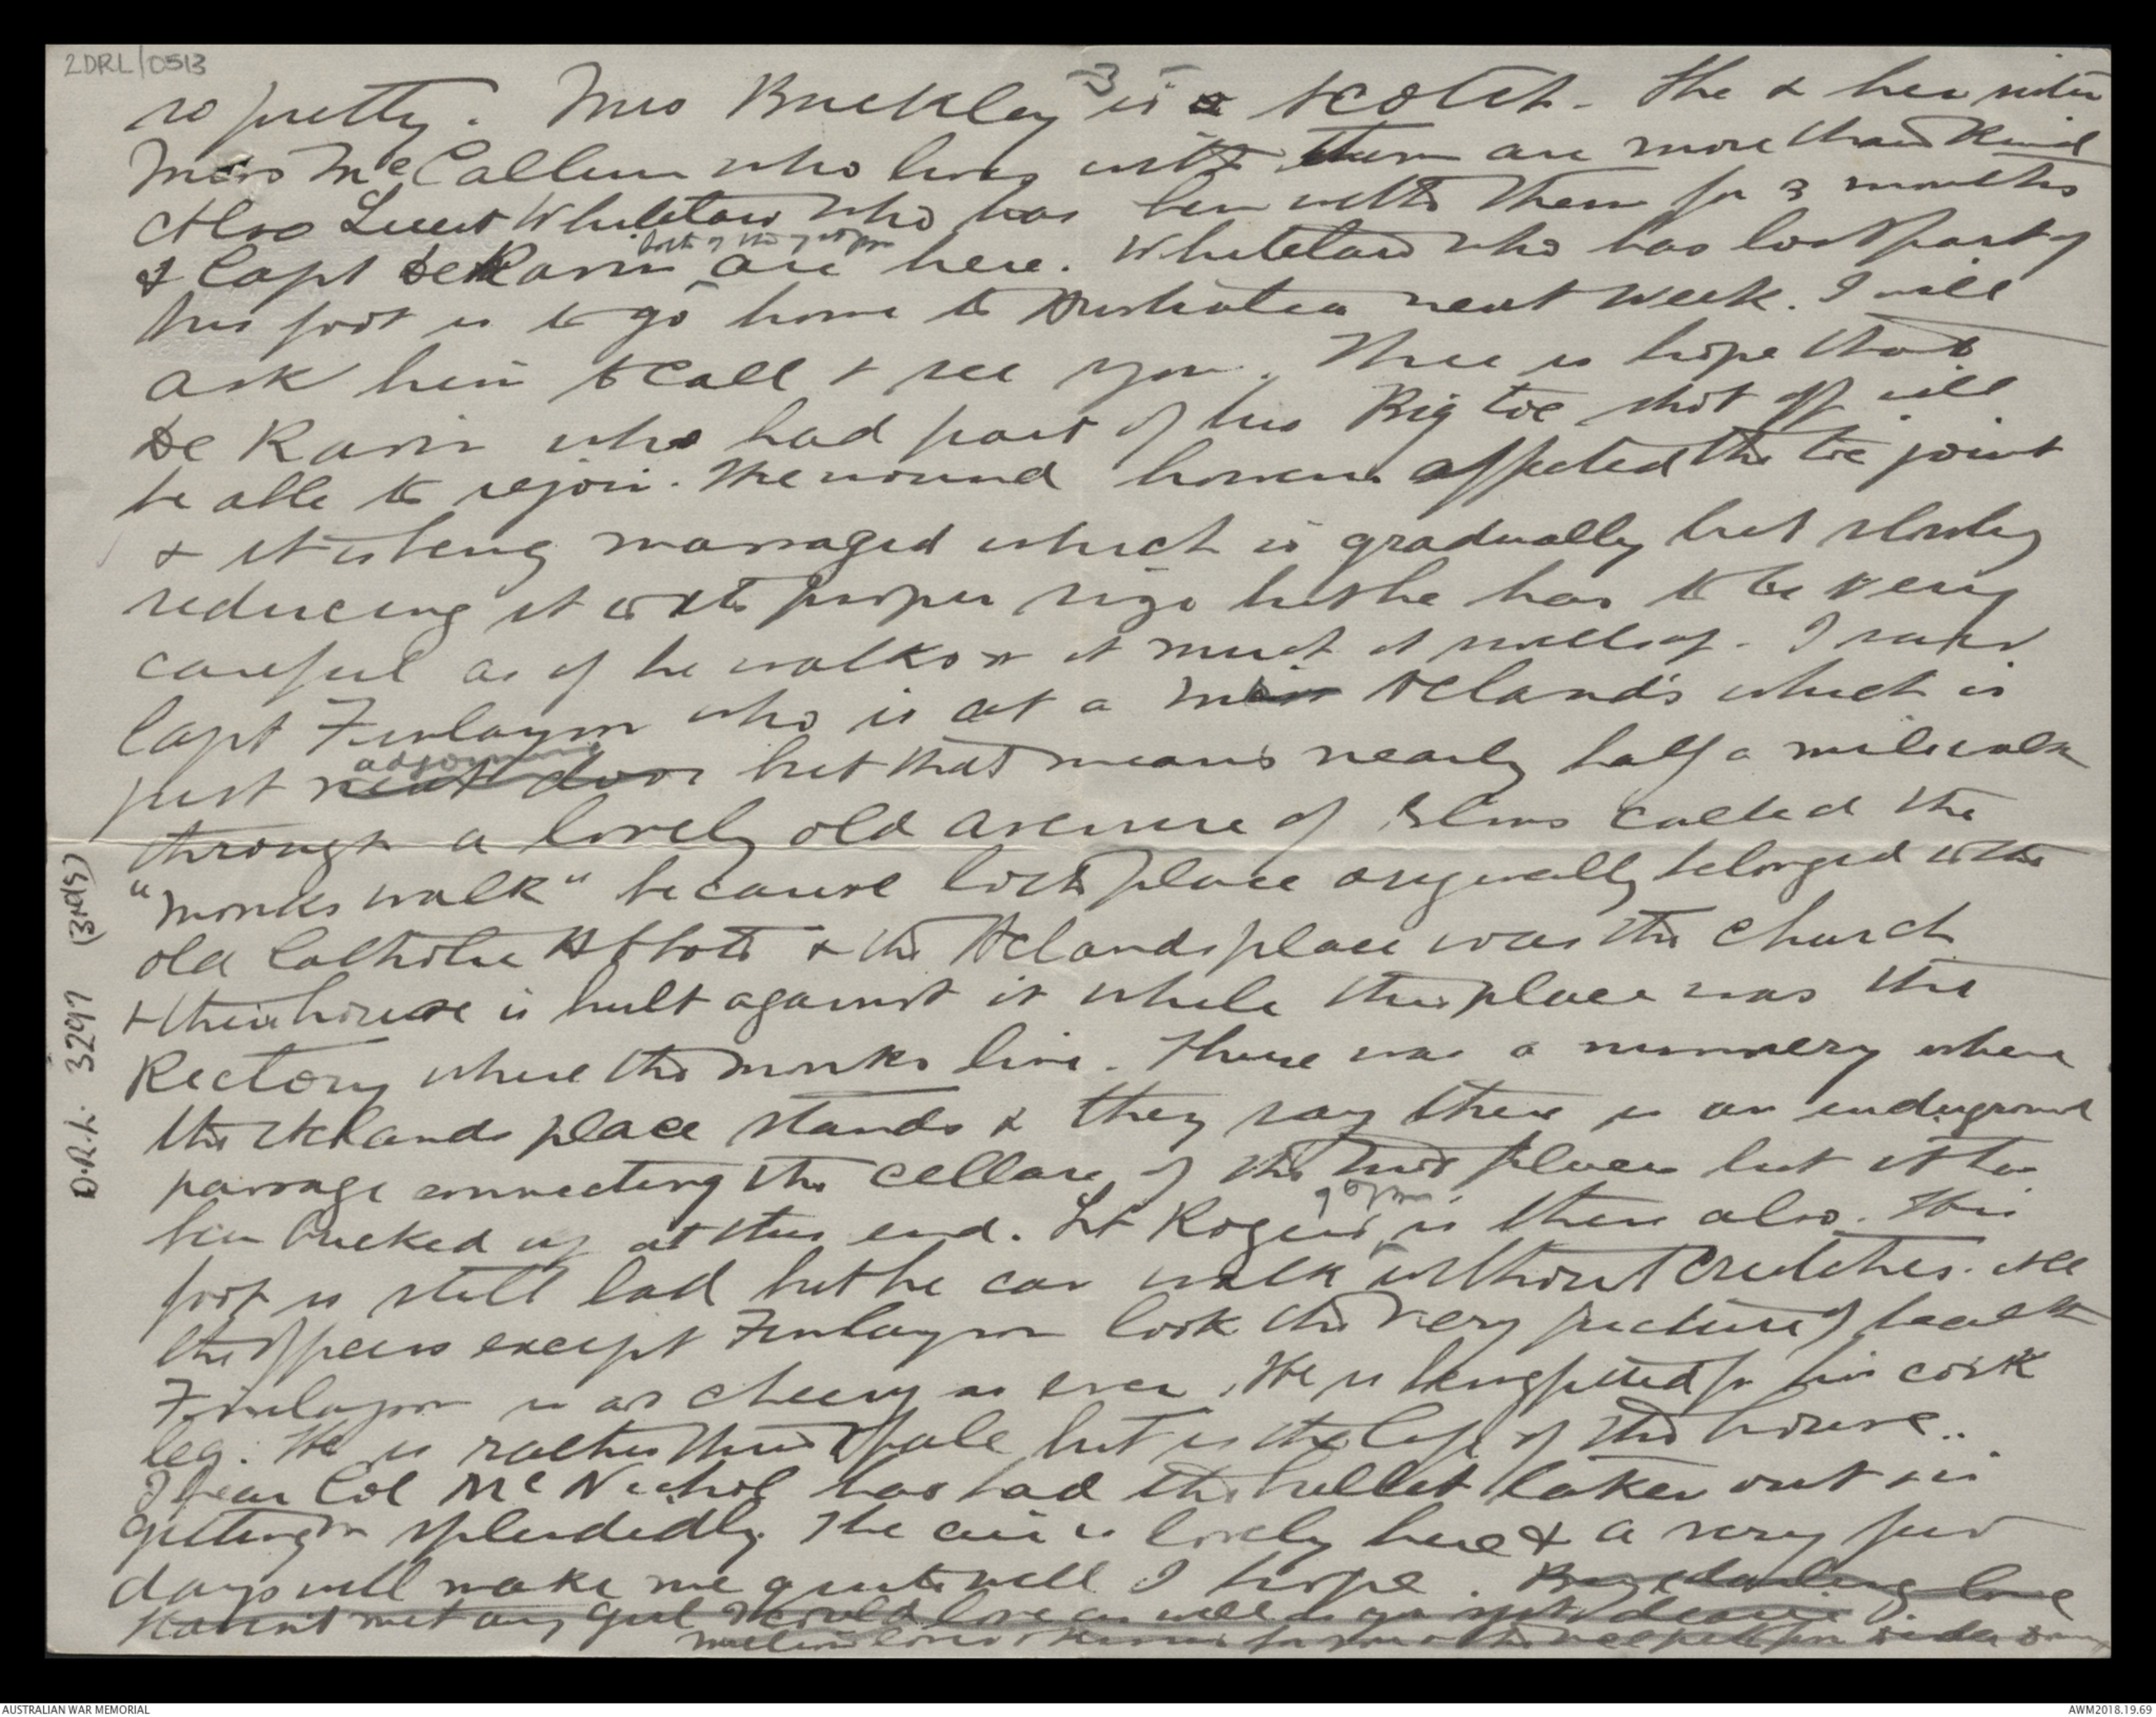 2DRL/0513
-3-
so pretty. Mrs Buckley is a Scotch. She & her sister
Miss McCallum who lives with them are more than kind
Also Lieut Whitelaw who has been with them for 3 months
both of the 7th Bn
& Capt De Ravin are here. Whitelaw who has lost part of
his foot is to go home to Australia next week. I will
ask him to call & see you. There is hope that
De Ravin who had part of his Big toe shot off will
be able to rejoin. The wound however affected the toe joint
& it is being massaged which is gradually but slowly
reducing it to its proper size but he has to be very
careful as if he walks on it much it swells up. I saw
Capt Finlayson who is at a Mrs Aclands which is
adjoining
just next door but that means nearly half a mile walk
through a lovely old avenue of Elms called the
"Monks walk" because both place originally belonged to the
old Catholic Abbots & the Aclands place was the church
& their house is built against it while this place was the
Rectory where the monks live. There was a nunnery where
the Aclands place stands & they say there is an underground
passage connecting the cellars of the two places but it has
been bricked up at this end. Lt Rogers is there also. His
foot is still bad but he can walk without crutches. All
the officers except Finlayson look the very picture of health
Finlayson is as cheery as ever. He is being fitted for his cork
leg. He is rather thin & pale but is the life of the house..
I hear Col McNichol has had the bullet taken out & is
getting on splendidly. The air is lovely here & a very few
days will make me quite well I hope. darling love
Havent met any girl I could love as well as you
D.R.L. 3297 (3rds)
AUSTRALIAN WAR MEMORIAL
AWM2018.19.69